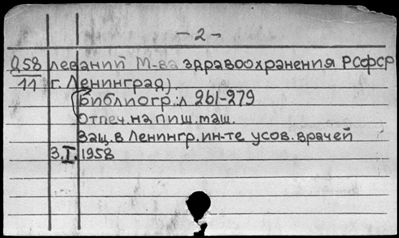 - 2 -
958 леваний М-ва здравоохранения РСФСР
11 г. Ленинград).
Библиогр.: л 261-279
Отпеч. на пиш. маш.
Защ. в Ленингр. ин-те усов. врачей
3.I.1958